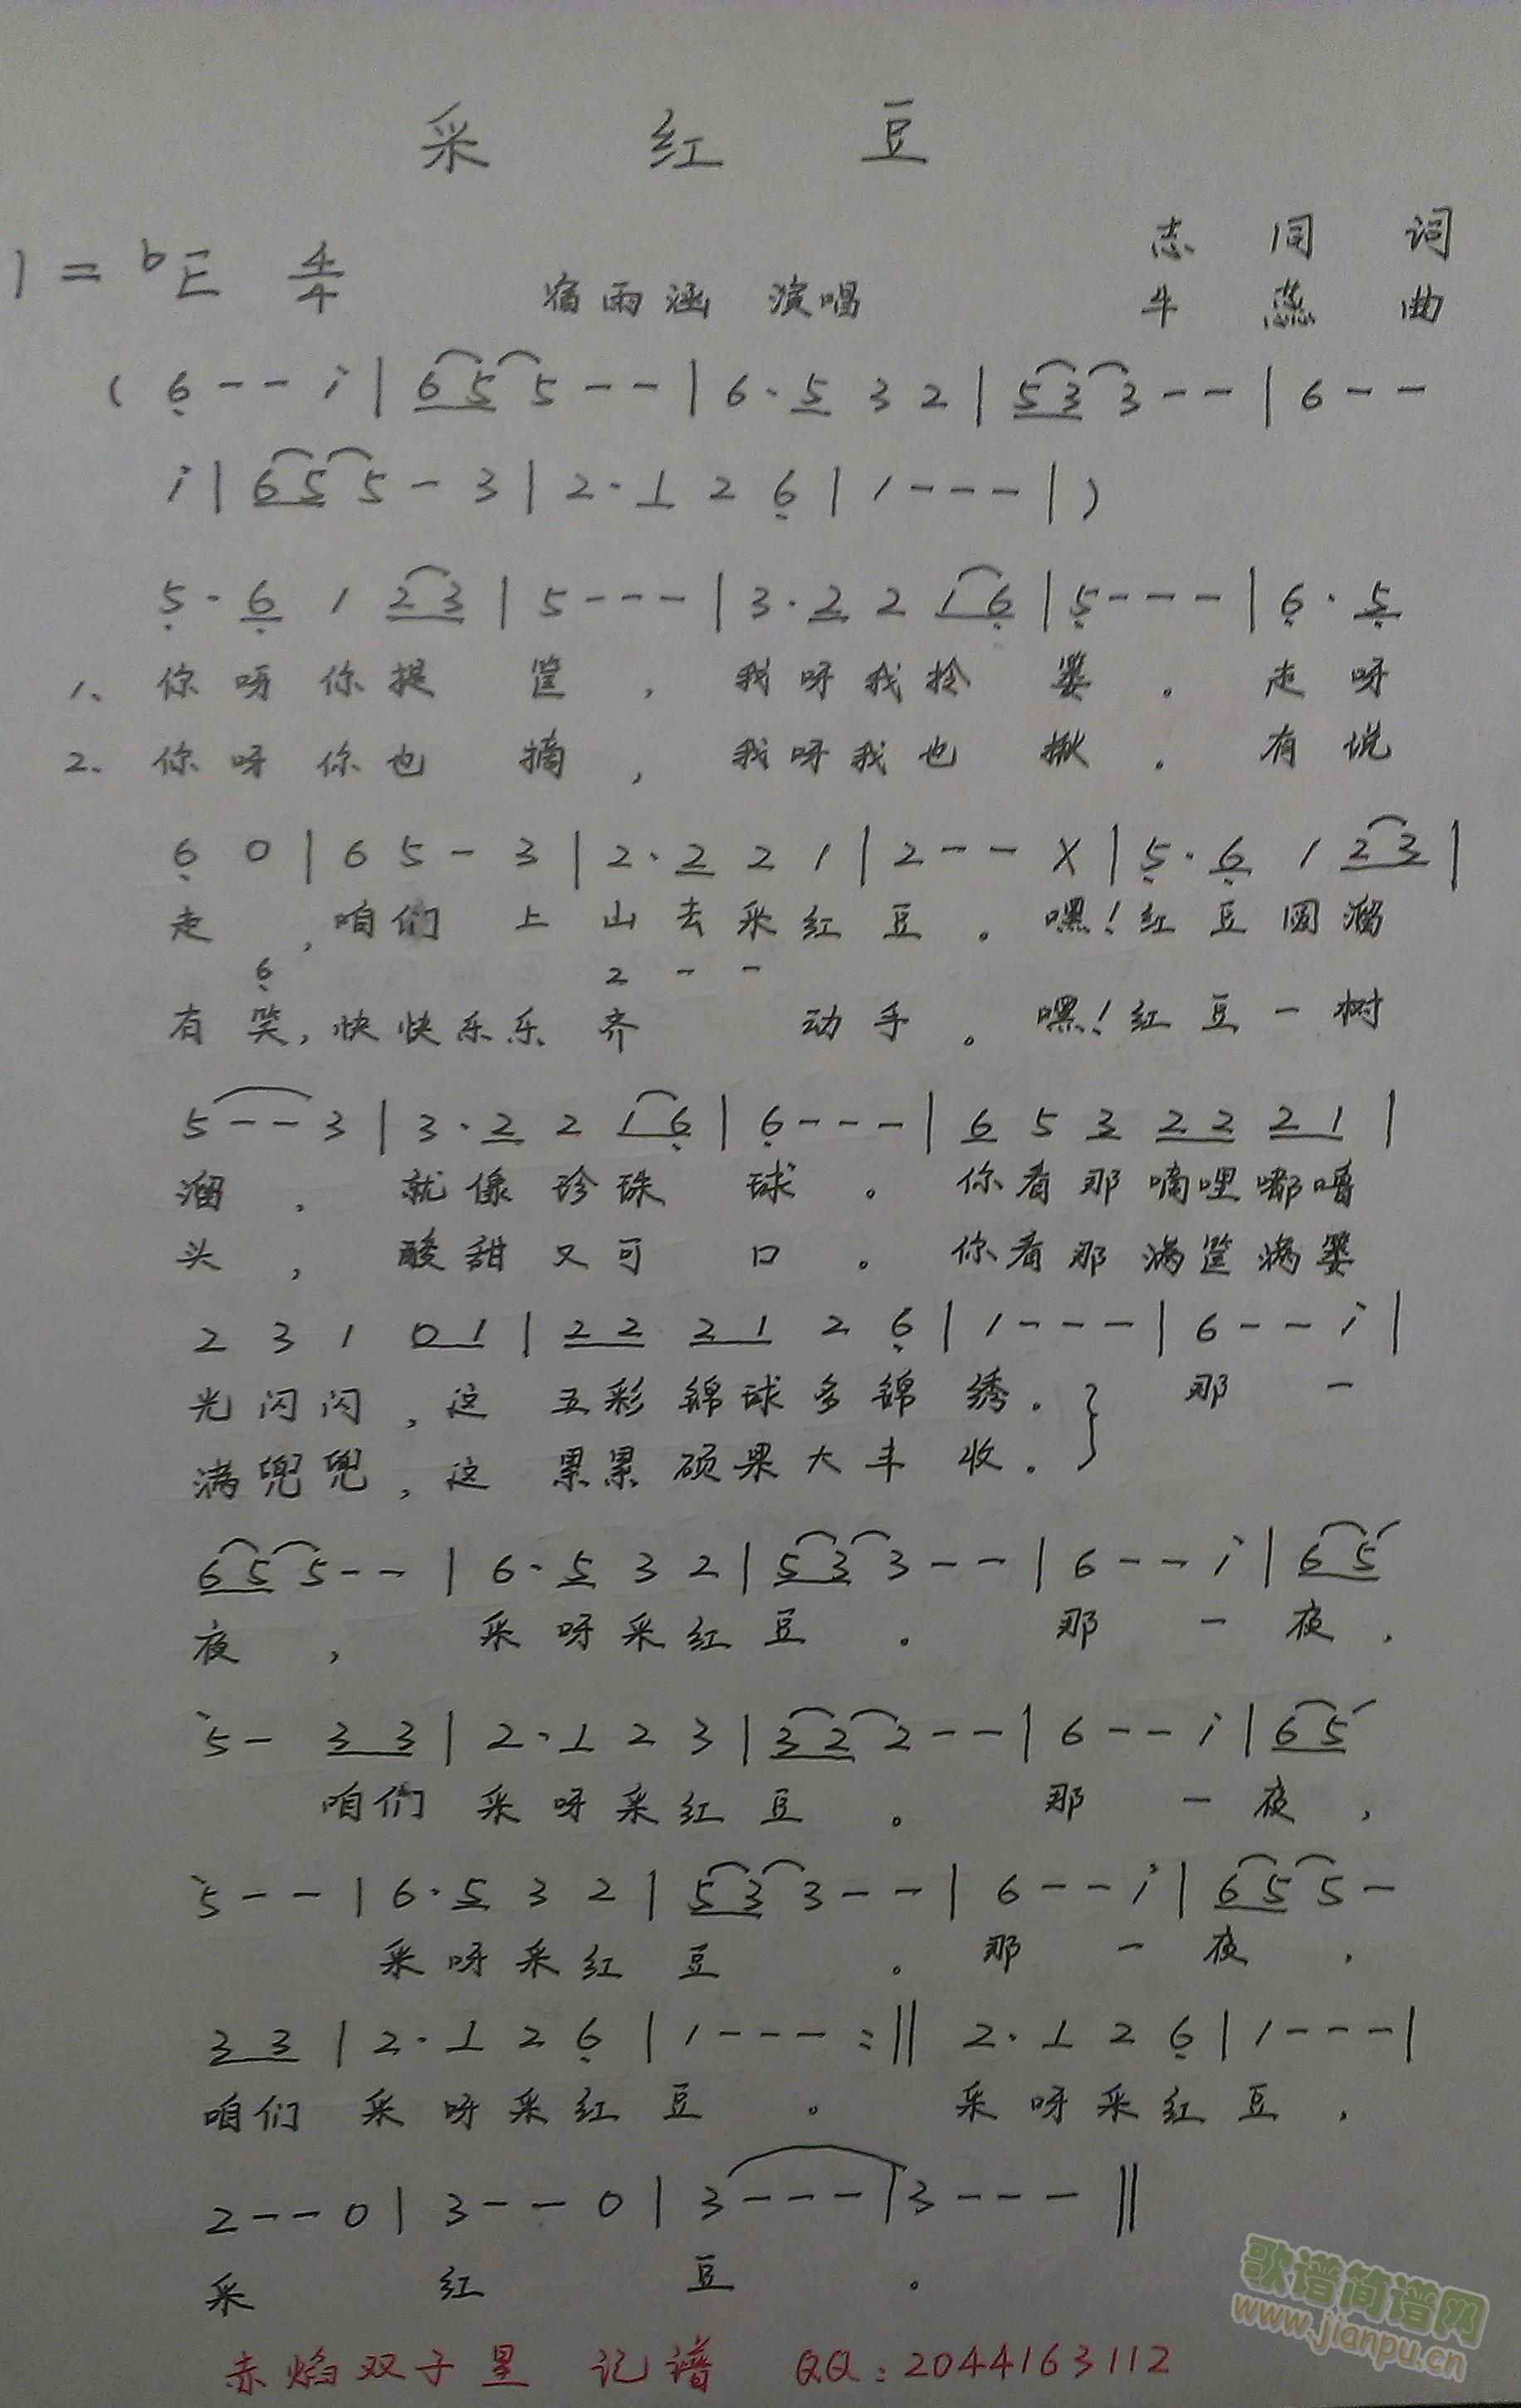 采 红 豆
志 同 词
1 = bE 4/4 宿雨涵 演唱 牛 燕 曲
( 6̣ - - i̇ | 6 5 5 - - | 6 · 5 3 2 | 5 3 3 - - | 6 - -
i̇ | 6 5 5 - 3 | 2 · 1 2 6̣ | 1 - - - | )
5̣ · 6̣ 1 2 3 | 5 - - - | 3 · 2 2 1 6̣ | 5̣ - - - | 6̣ · 5̣
1、 你 呀 你 提 筐 , 我 呀 我 拎 篓 。 走 呀
2、 你 呀 你 也 摘 , 我 呀 我 也 揪 。 有 说
6̣ 0 | 6 5 - 3 | 2 · 2 2 1 | 2 - - X | 5̣ · 6̣ 1 2 3 |
走 , 咱们 上 山 去 采 红 豆 。 嘿! 红 豆 圆 溜
6̣ 2 - -
有 笑, 快 快 乐 乐 齐 动 手 。 嘿! 红 豆 一 树
5 - - 3 | 3 · 2 2 1 6̣ | 6̣ - - - | 6 5 3 2 2 2 1 |
溜 , 就 像 珍 珠 球 。 你 看 那 嘀 哩 嘟 噜
头 , 酸 甜 又 可 口 。 你 看 那 满 筐 满 篓
2 3 1 0 1 | 2 2 2 1 2 6̣ | 1 - - - | 6 - - i̇ |
光 闪 闪 , 这 五 彩 锦 球 多 锦 绣 。 } 那 一
满 兜 兜 , 这 累 累 硕 果 大 丰 收 。
6 5 5 - - | 6 · 5 3 2 | 5 3 3 - - | 6 - - i̇ | 6 5
夜 , 采 呀 采 红 豆 。 那 一 夜 ,
5 - 3 3 | 2 · 1 2 3 | 3 2 2 - - | 6 - - i̇ | 6 5
咱们 采 呀 采 红 豆 。 那 一 夜 ,
5 - - | 6 · 5 3 2 | 5 3 3 - - | 6 - - i̇ | 6 5 5 -
采 呀 采 红 豆 。 那 一 夜 ,
3 3 | 2 · 1 2 6̣ | 1 - - - :‖ 2 · 1 2 6̣ | 1 - - - |
咱们 采 呀 采 红 豆 。 采 呀 采 红 豆 ,
2 - - 0 | 3 - - 0 | 3 - - - | 3 - - - ‖
采 红 豆 。
赤焰双子星 记谱 QQ:2044163112
歌谱简谱网
www.jianpu.cn